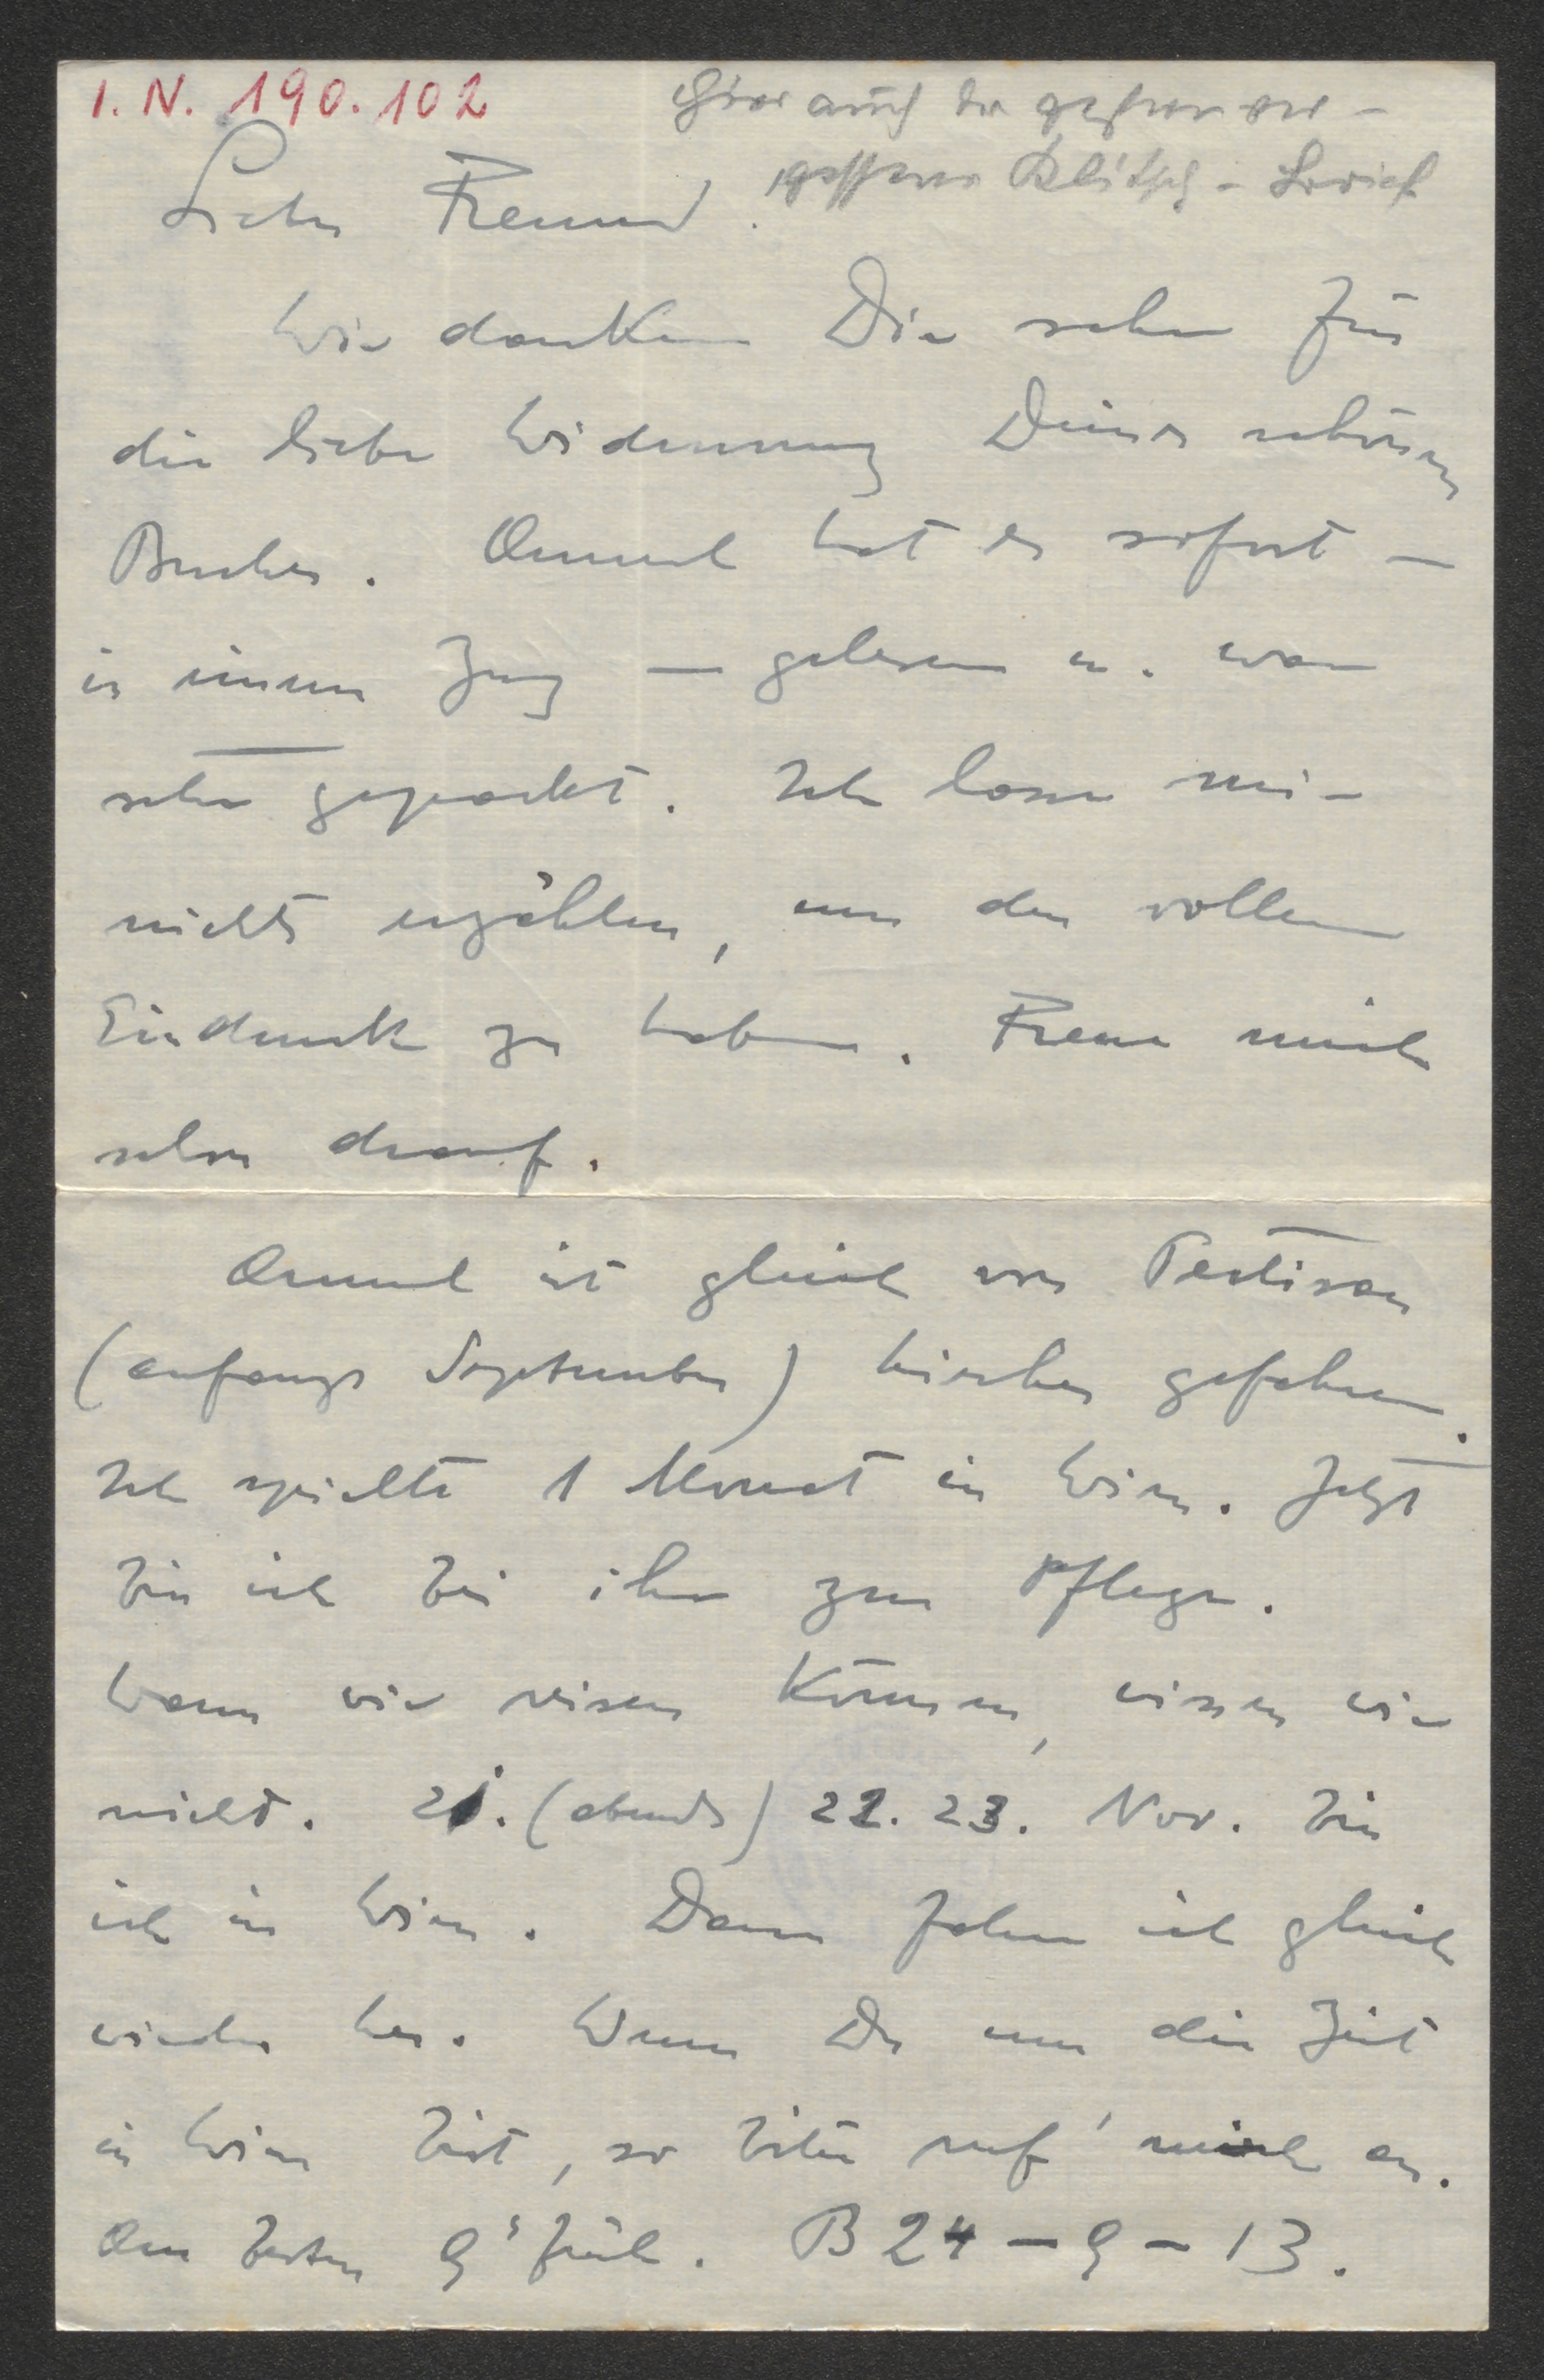 I. N. 190.102
Hier auch der gestern ver-
gessene Klitsch-Brief
Lieber Freund!
Wir danken Dir sehr für
die liebe Widmung Deines schönen
Buches. Onmel hat es sofort —
in einem Zug — gelesen u. war
sehr gepackt. Ich lasse mir
nichts erzählen, um den vollen
Eindruck zu haben. Freue mich
schon drauf.
Onmel ist gleich von Pertisau
(anfangs September) hierher gefahren.
Ich spielte 1 Monat in Wien. Jetzt
bin ich bei ihm zur Pflege.
Wann wir reisen können, wissen wir
nicht. 21. (abends) 22. 23. Nov. bin
ich in Wien. Dann fahre ich gleich
wieder her. Wenn Du um die Zeit
in Wien bist, so bitte ruf' mich an.
Am besten 9h früh. B 24-9-13.